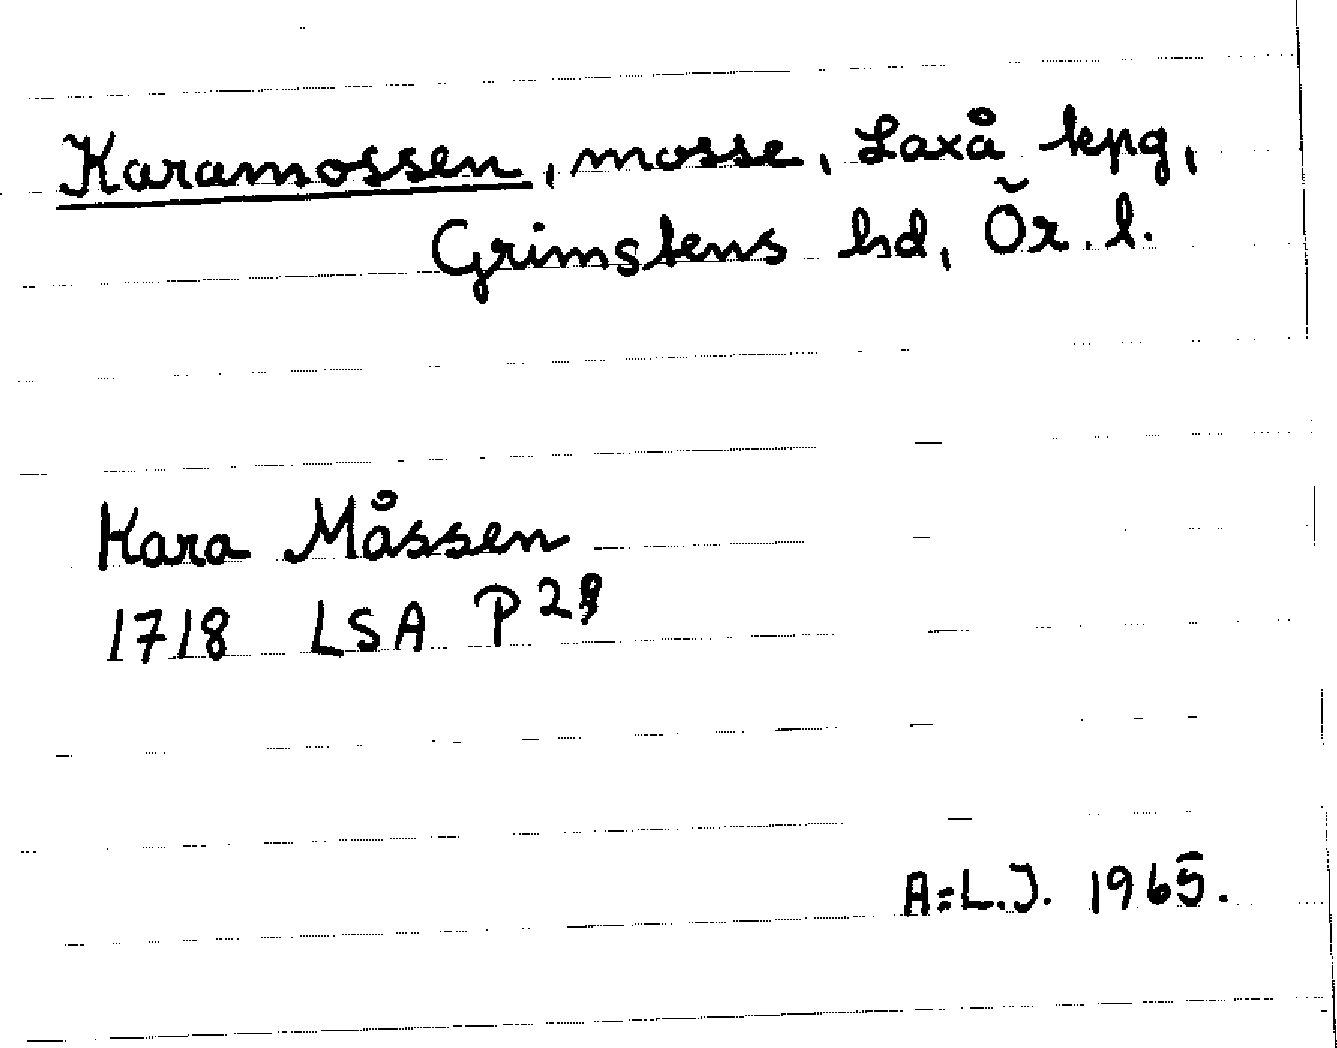 Karamossen, mosse, Laxå kpg,
Grimstens hd, Ör. l.
Kara Måssen
1718 LSA P
A=L.J. 1965.